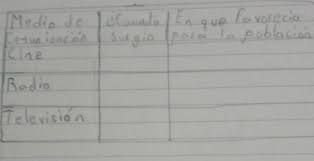 Medio de Cuando En que Favorecia
Comunicación surgio para la población
Cine
Radio
Televisión